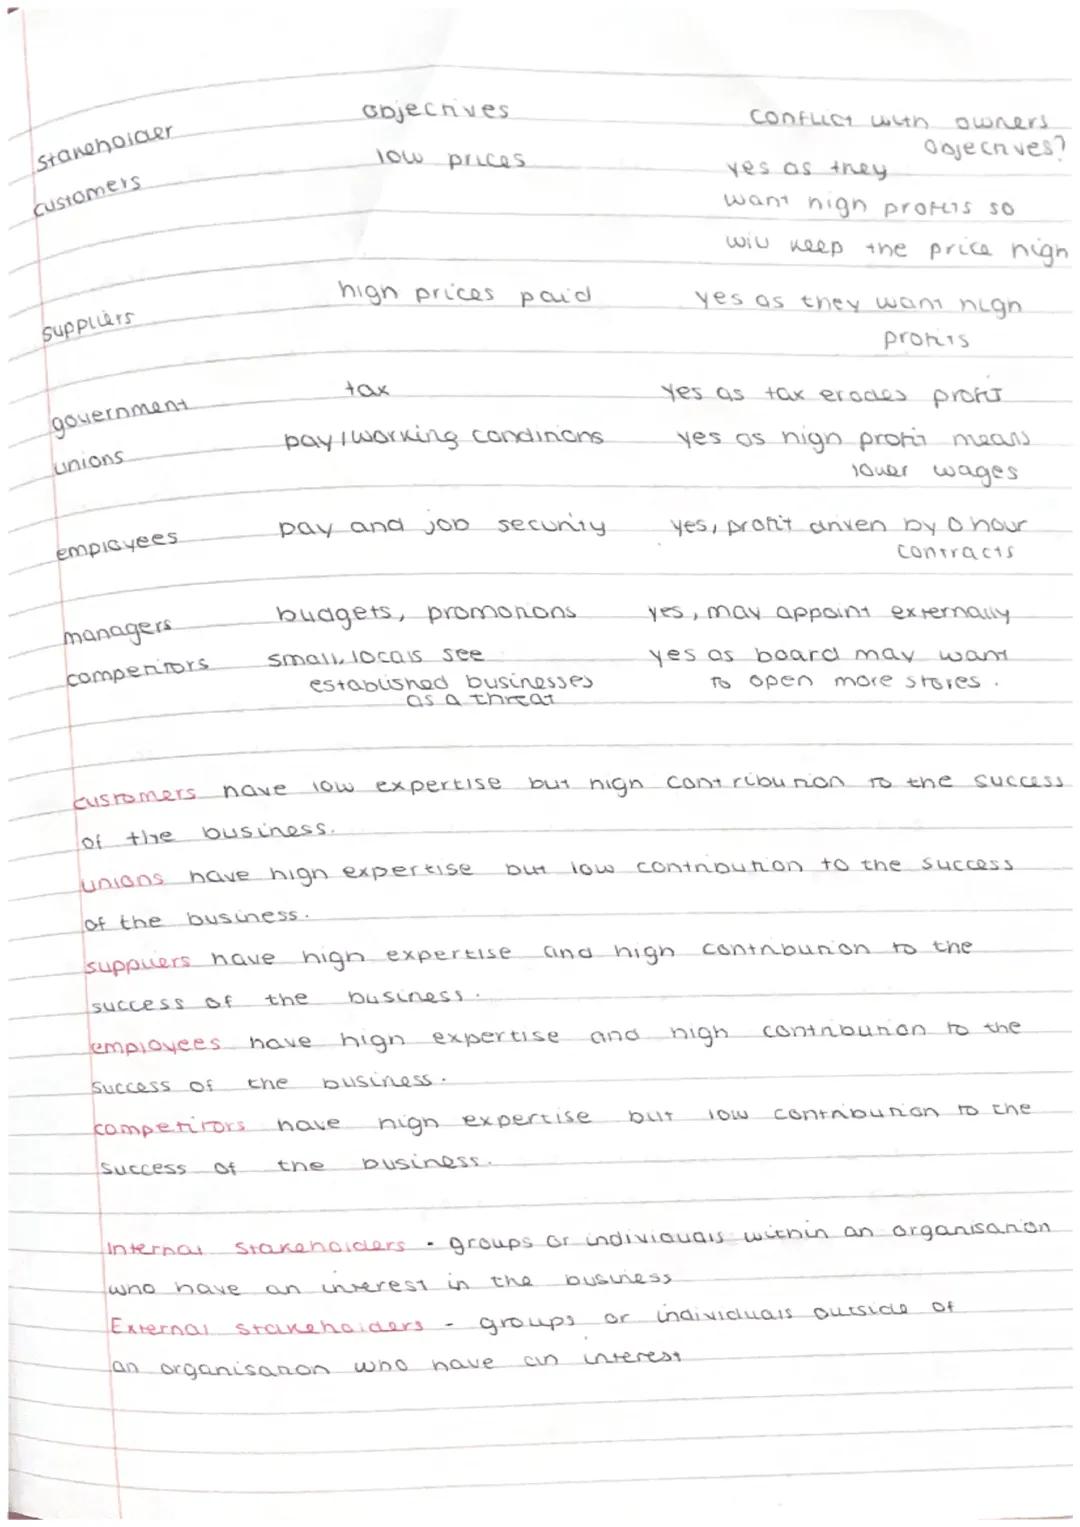 stakeholder objectives conflict with owners
objectives?
customers low prices yes as they
want high profits so
will keep the price high
suppliers high prices paid yes as they want high
profits
government tax yes as tax erodes profit
unions pay/working conditions yes as high profit means
lower wages
employees pay and job security yes, profit driven by 0 hour
contracts
managers budgets, promotions yes, may appoint externally
competitors small, locals see yes as board may want
established businesses to open more stores.
as a threat
customers have low expertise but high contribution to the success
of the business.
unions have high expertise but low contribution to the success
of the business.
suppliers have high expertise and high contribution to the
success of the business.
employees have high expertise and high contribution to the
success of the business.
competitors have high expertise but low contribution to the
success of the business.
Internal stakeholders - groups or individuals within an organisation
who have an interest in the business
External stakeholders - groups or individuals outside of
an organisation who have an interest